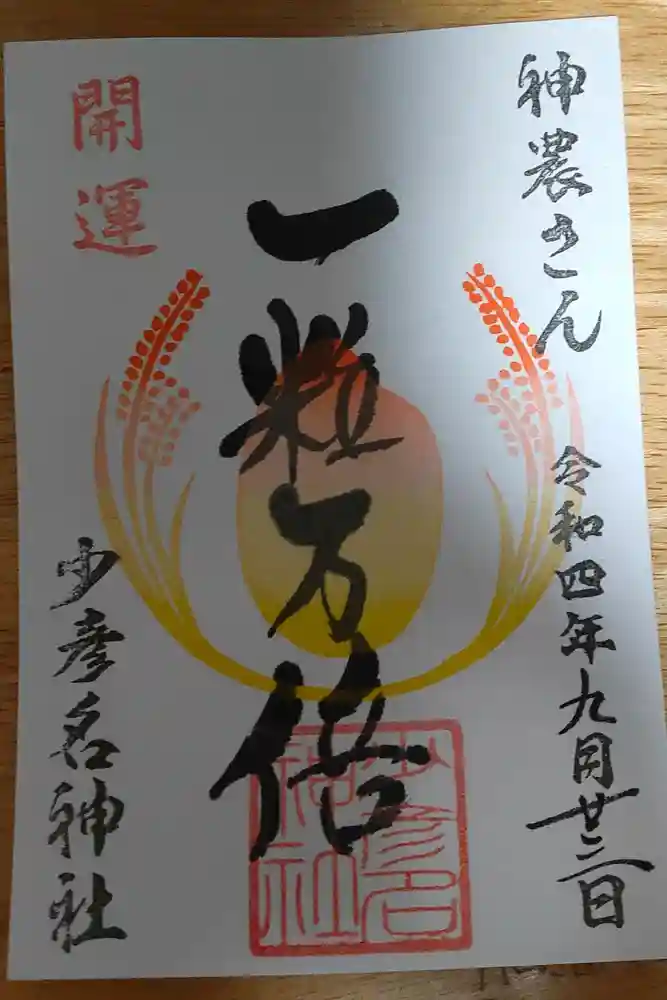 神農さん
令和四年九月廿三日
一粒万倍
開運
少彦名神社
少彦名
神社